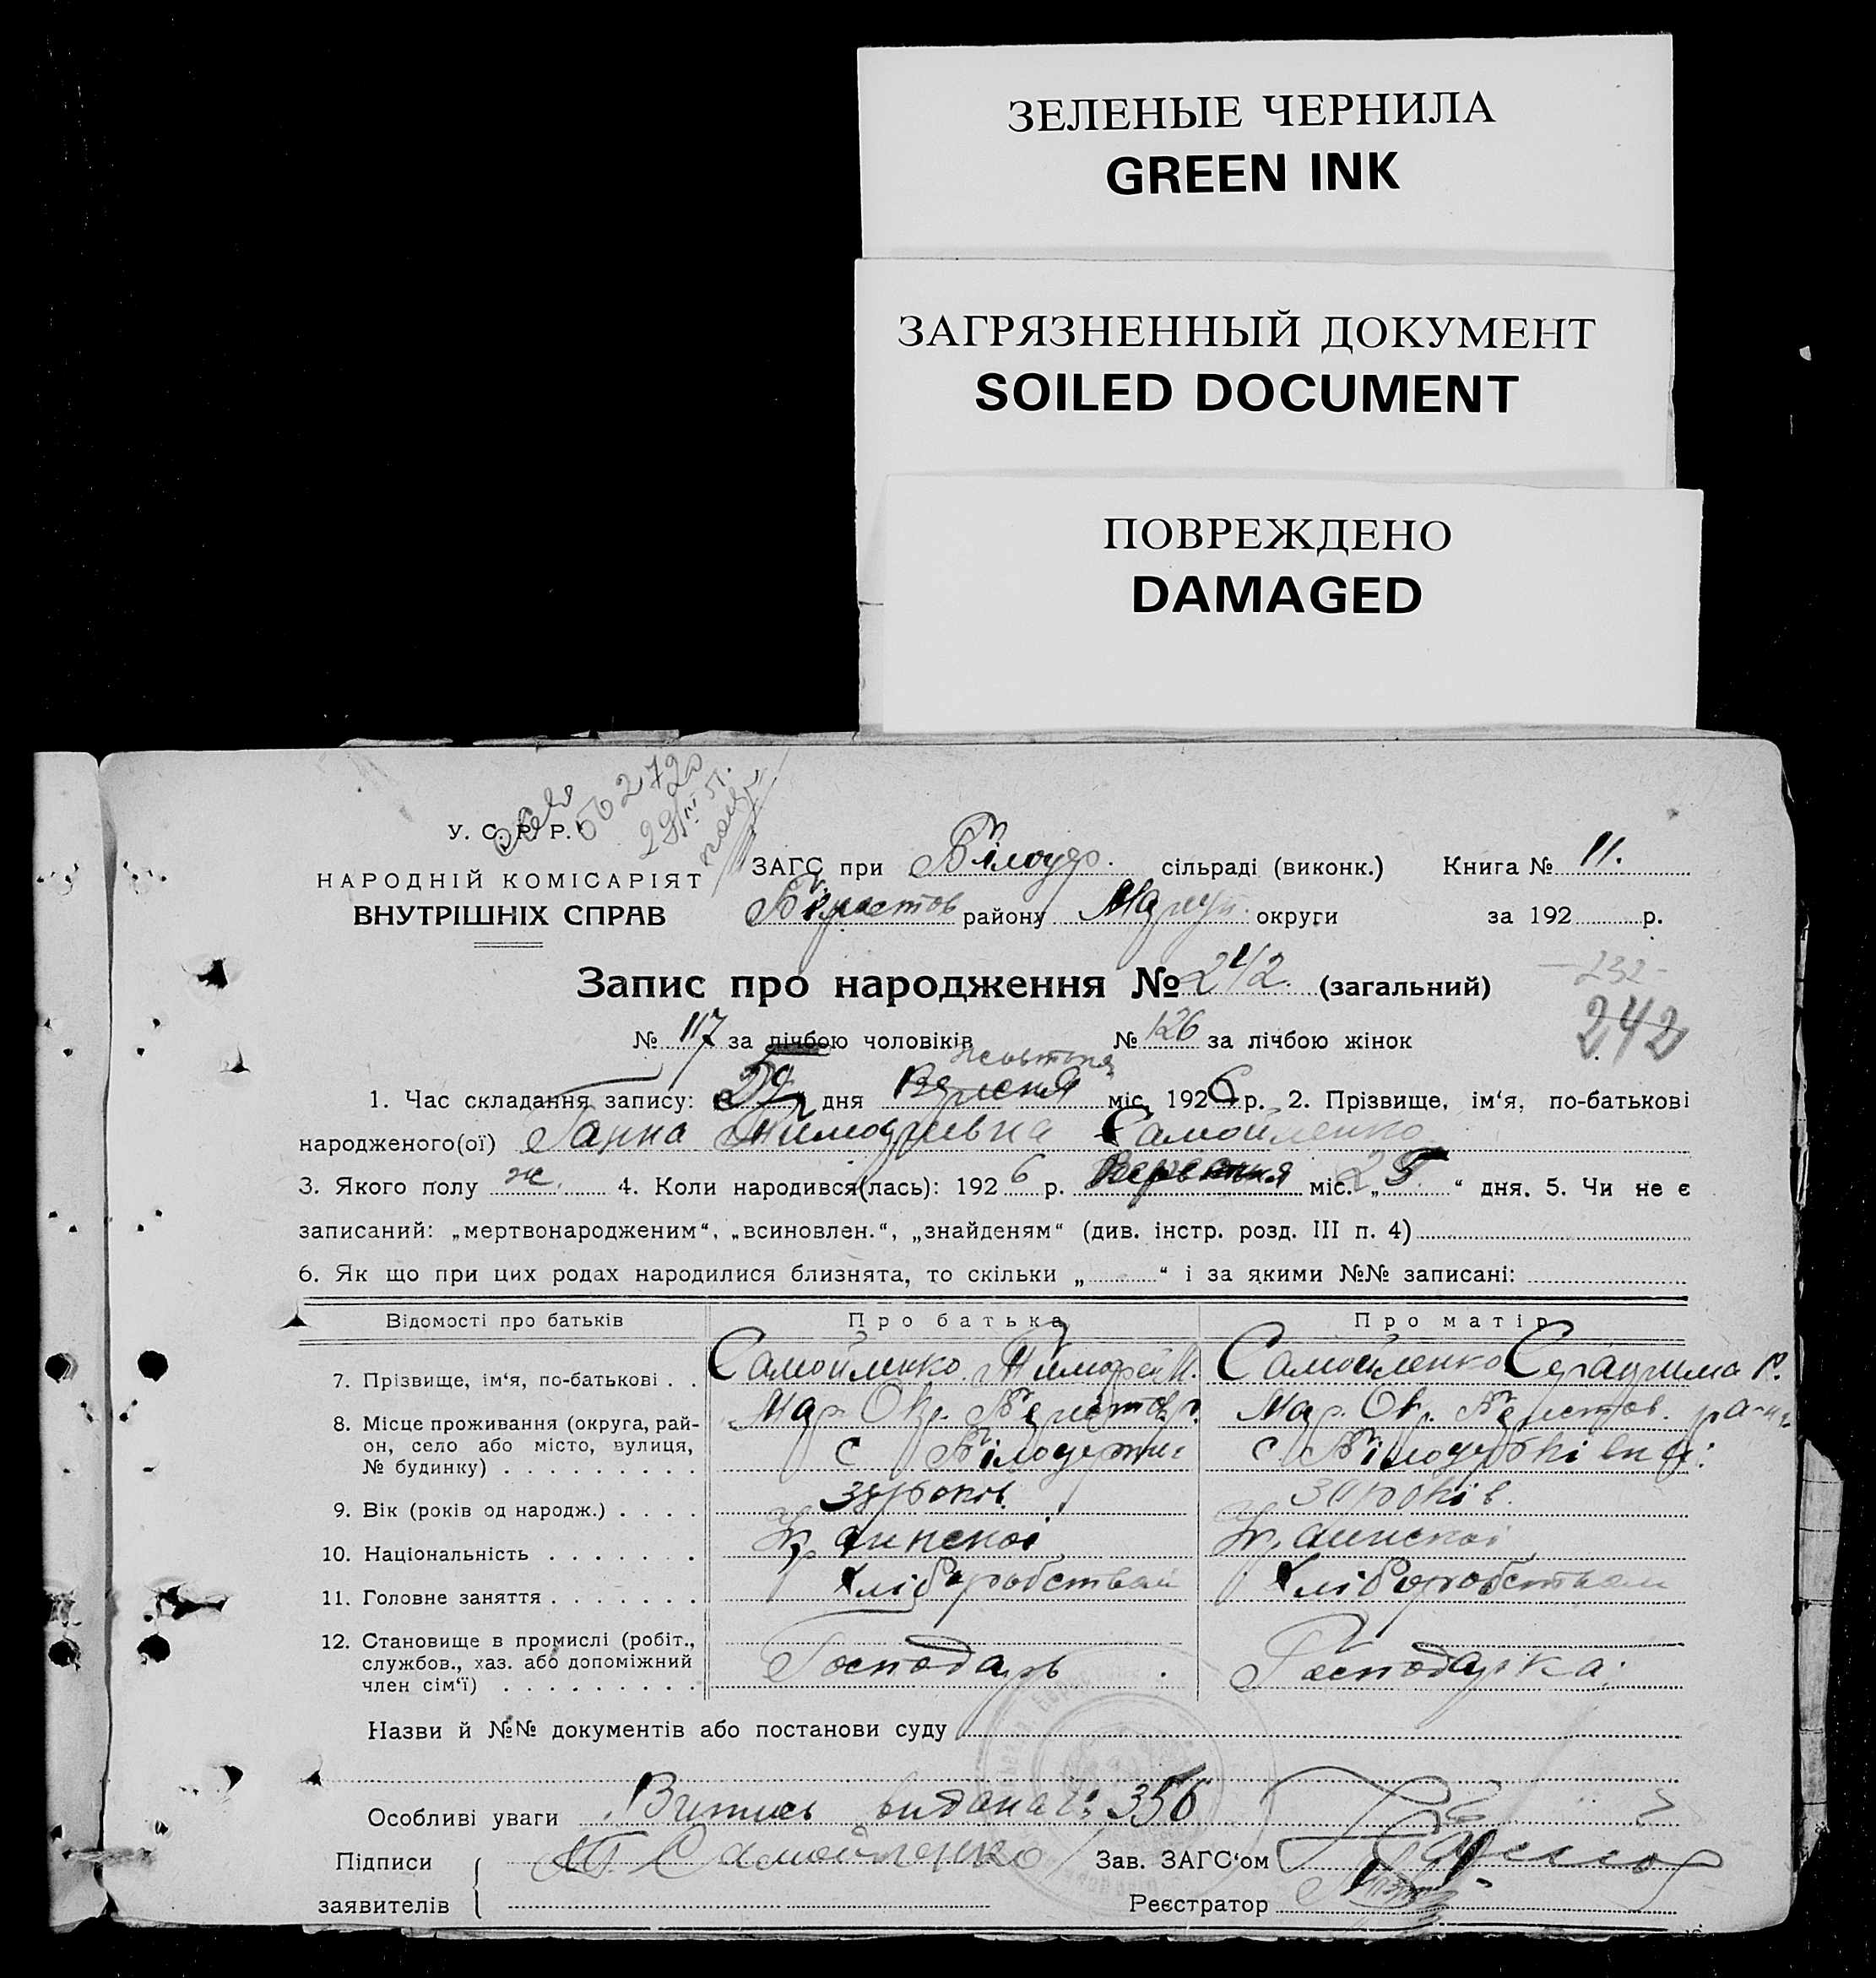 ЗЕЛЕНЫЕ ЧЕРНИЛА
GREEN INK
ЗАГРЯЗНЕННЫЙ ДОКУМЕНТ
SOILED DOCUMENT
ПОВРЕЖДЕНО
DAMAGED
У. С. Р. Р.
НАРОДНІЙ КОМІСАРІЯТ
ВНУТРІШНІХ СПРАВ
ЗАГС при Білоцер. сільраді (виконк.) Книга № 11.
району округи за 192 р.
Запис про народження № 242 (загальний)
232
242
№ 117 за лічбою чоловіків № 126 за лічбою жінок
жовтня
1. Час складання запису: дня Вересня міс. 1926 р. 2. Прізвище, ім‘я, по-батькові
народженого(ої) Ганна Тимофіївна Самойленко
3. Якого полу ж. 4. Коли народився(лась): 1926 р. міс. „25“ дня. 5. Чи не є
записаний: „мертвонародженим“, „всиновлен.“, „знайденям“ (див. інстр. розд. III п. 4)
6. Як що при цих родах народилися близнята, то скільки „ “ і за якими №№ записані:
Відомості про батьків Про батька Про матір
7. Прізвище, ім‘я, по-батькові . . Самойленко Тимофей Самойленко Серафима
8. Місце проживання (округа, рай- Мар. Окр. Мар. Ок.
он, село або місто, вулиця, с с
№ будинку)
9. Вік (років од народж.) . . . . років 30 років.
10. Національність Українскоі Українскоі
11. Головне заняття Хліборобством Хліборобством
12. Становище в промислі (робіт.,
службов., хаз. або допоміжний Господарь Господарка
член сім‘ї)
Назви й №№ документів або постанови суду
Особливі уваги Випись видана 356
Підписи Т. Самойленко Зав. ЗАГС‘ом
заявителів Реєстратор